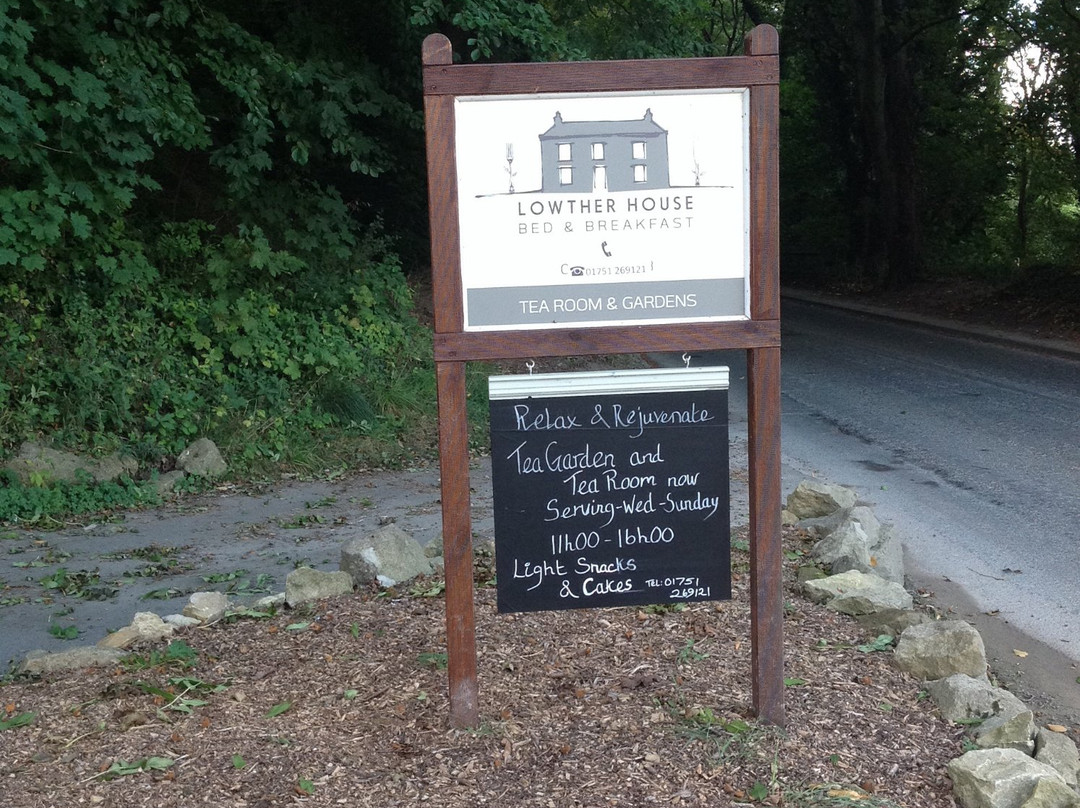 LOWTHER HOUSE
BED & BREAKFAST
01751 269121
TEA ROOM & GARDENS
Relax & Rejuvenate
Tea Garden and
Tea Room now
Serving-Wed-Sunday
11h00-16h00
Light Snacks
& Cakes TEL: 01751
269121